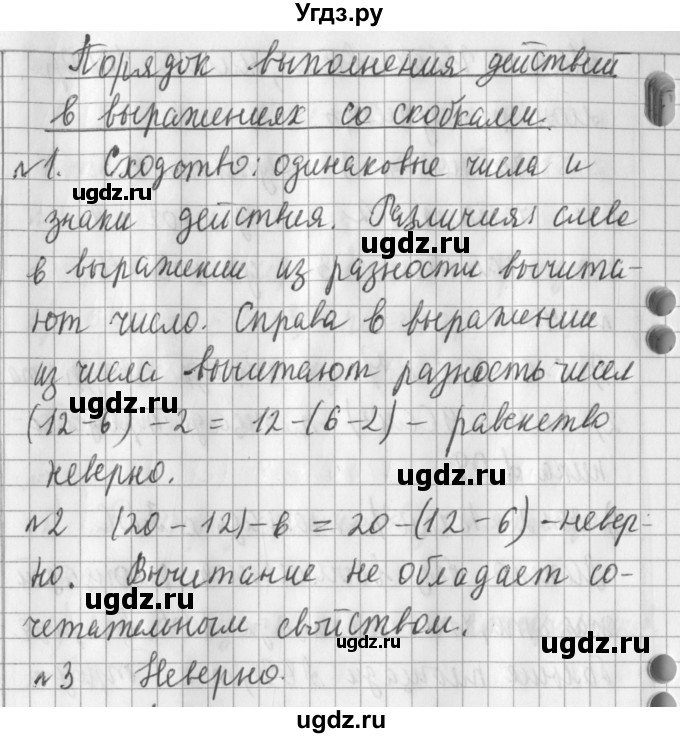 Угдз.ру
Порядок выполнения действий
в выражениях со скобками.
№1. Сходство: одинаковые числа и
ugdz.ru
знаки действия. Различия: слева
ugdz.ru
в выражении из разности вычита-
ют число. Справа в выражении
ugdz.ru
из числа вычитают разность чисел
ugdz.ru
(12-6)-2=12-(6-2)- равенство
неверно.
ugdz.ru
№2 (20-12)-6=20-(12-6)-невер-
но. Вычитание не обладает со-
ugdz.ru
четательным свойством.
ugdz.ru
№3 Неверно.
ugdz.ru